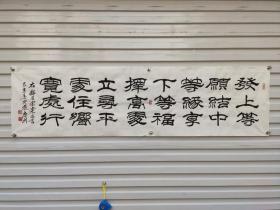 發上等
願結中
等緣享
下等福
擇高處
立尋平
處住
寬處行